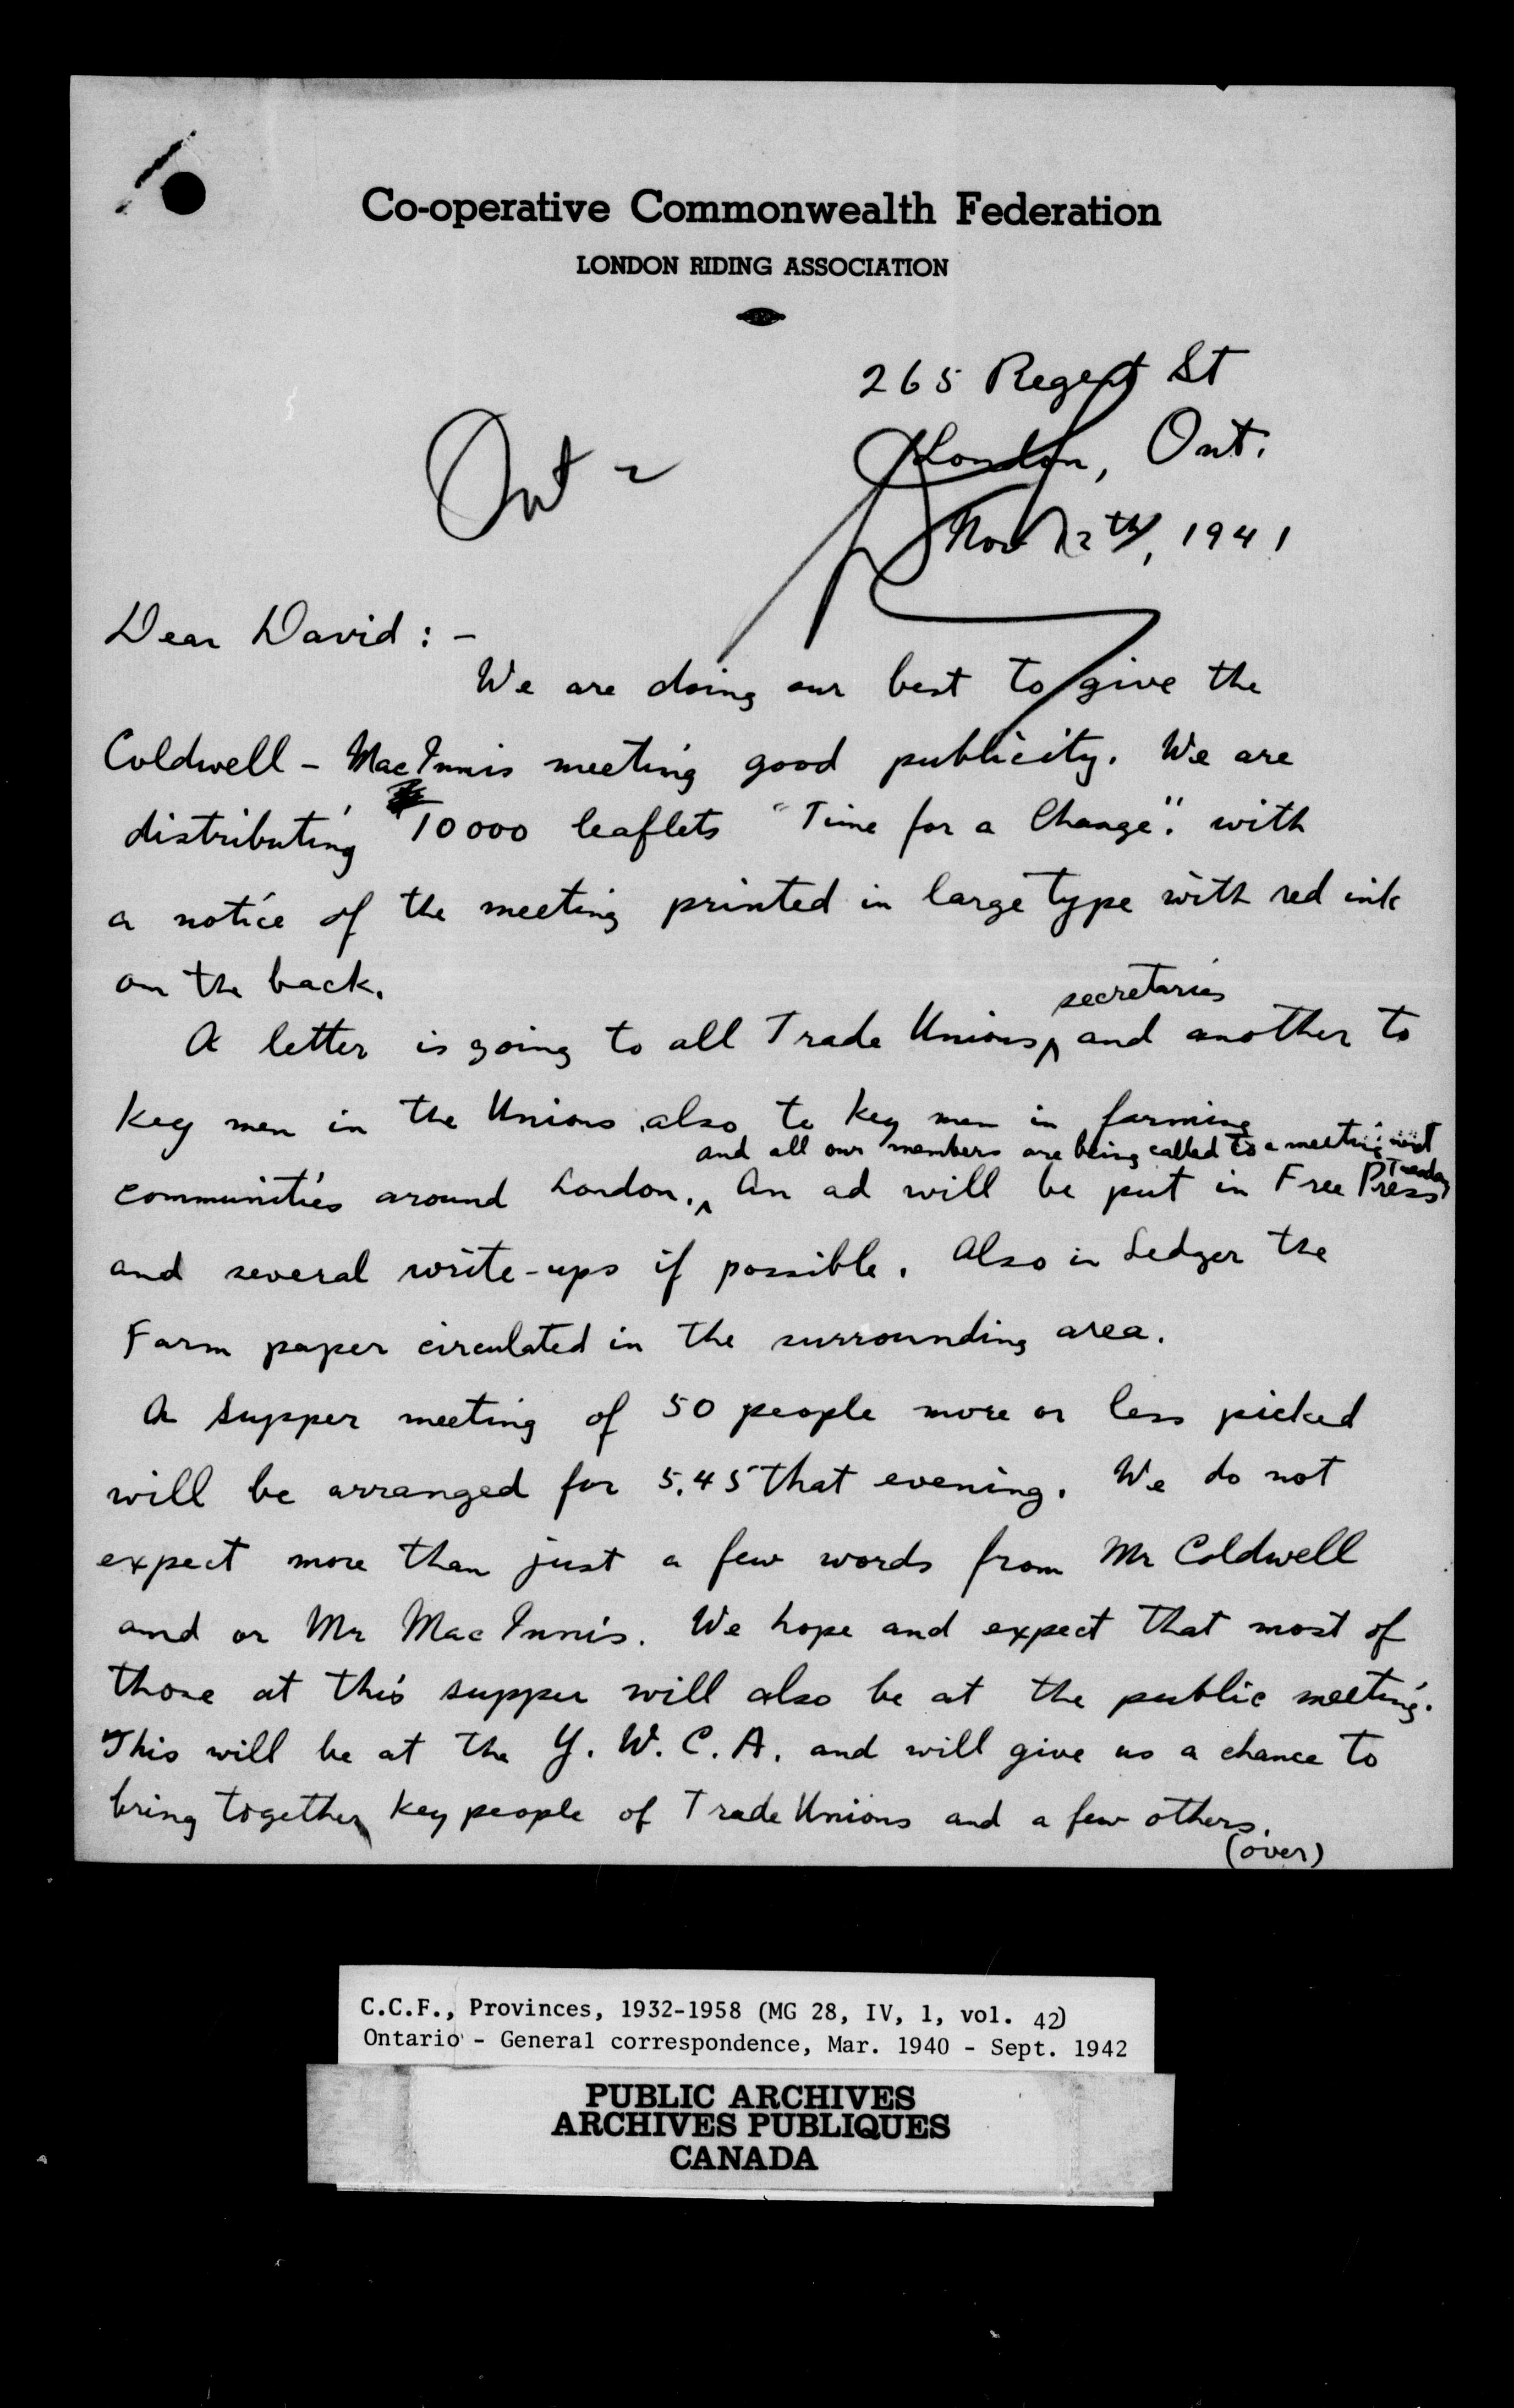 Co-operative Commonwealth Federation
LONDON RIDING ASSOCIATION
265 Regent St
London, Ont.
Ont
Nov 12th, 1941
Dear David : -
We are doing our best to give the
Coldwell - MacInnis meeting good publicity. We are
distributing 10000 leaflets "Time for a Change". with
a notice of the meeting printed in large type with red ink
on the back.
secretaries
A letter is going to all Trade Unions ^ and another to
key men in the Unions also to key men in farming
and all our members are being called to a meeting next
Tuesday
communities around London. ^ An ad will be put in Free Press
and several write-ups if possible. Also in Ledger the
Farm paper circulated in the surrounding area.
A supper meeting of 50 people more or less picked
will be arranged for 5.45 that evening. We do not
expect more than just a few words from Mr Coldwell
and or Mr MacInnis. We hope and expect that most of
those at this supper will also be at the public meeting.
This will be at the Y. W. C. A. and will give us a chance to
bring together key people of Trade Unions and a few others.
(over)
C.C.F., Provinces, 1932-1958 (MG 28, IV, 1, vol. 42)
Ontario - General correspondence, Mar. 1940 - Sept. 1942
PUBLIC ARCHIVES
ARCHIVES PUBLIQUES
CANADA